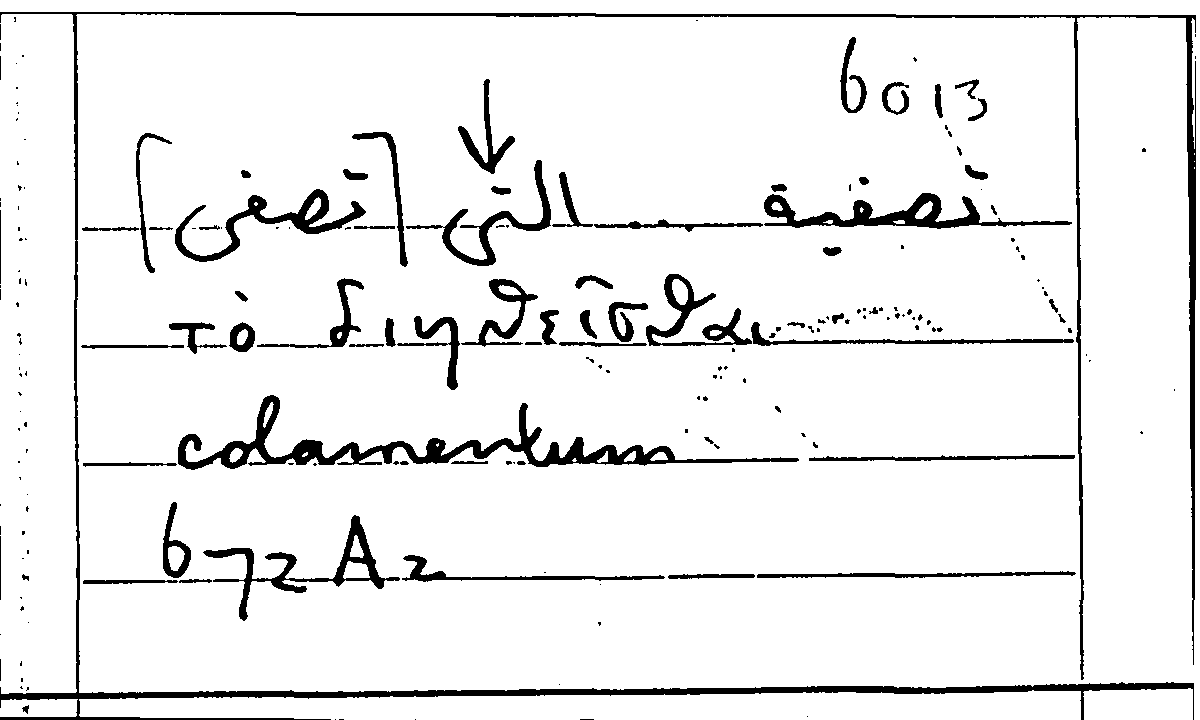 6013
تصفية ... التى [تصفى]
τὸ διηθεῖσθαι
colamentum
672 A 2